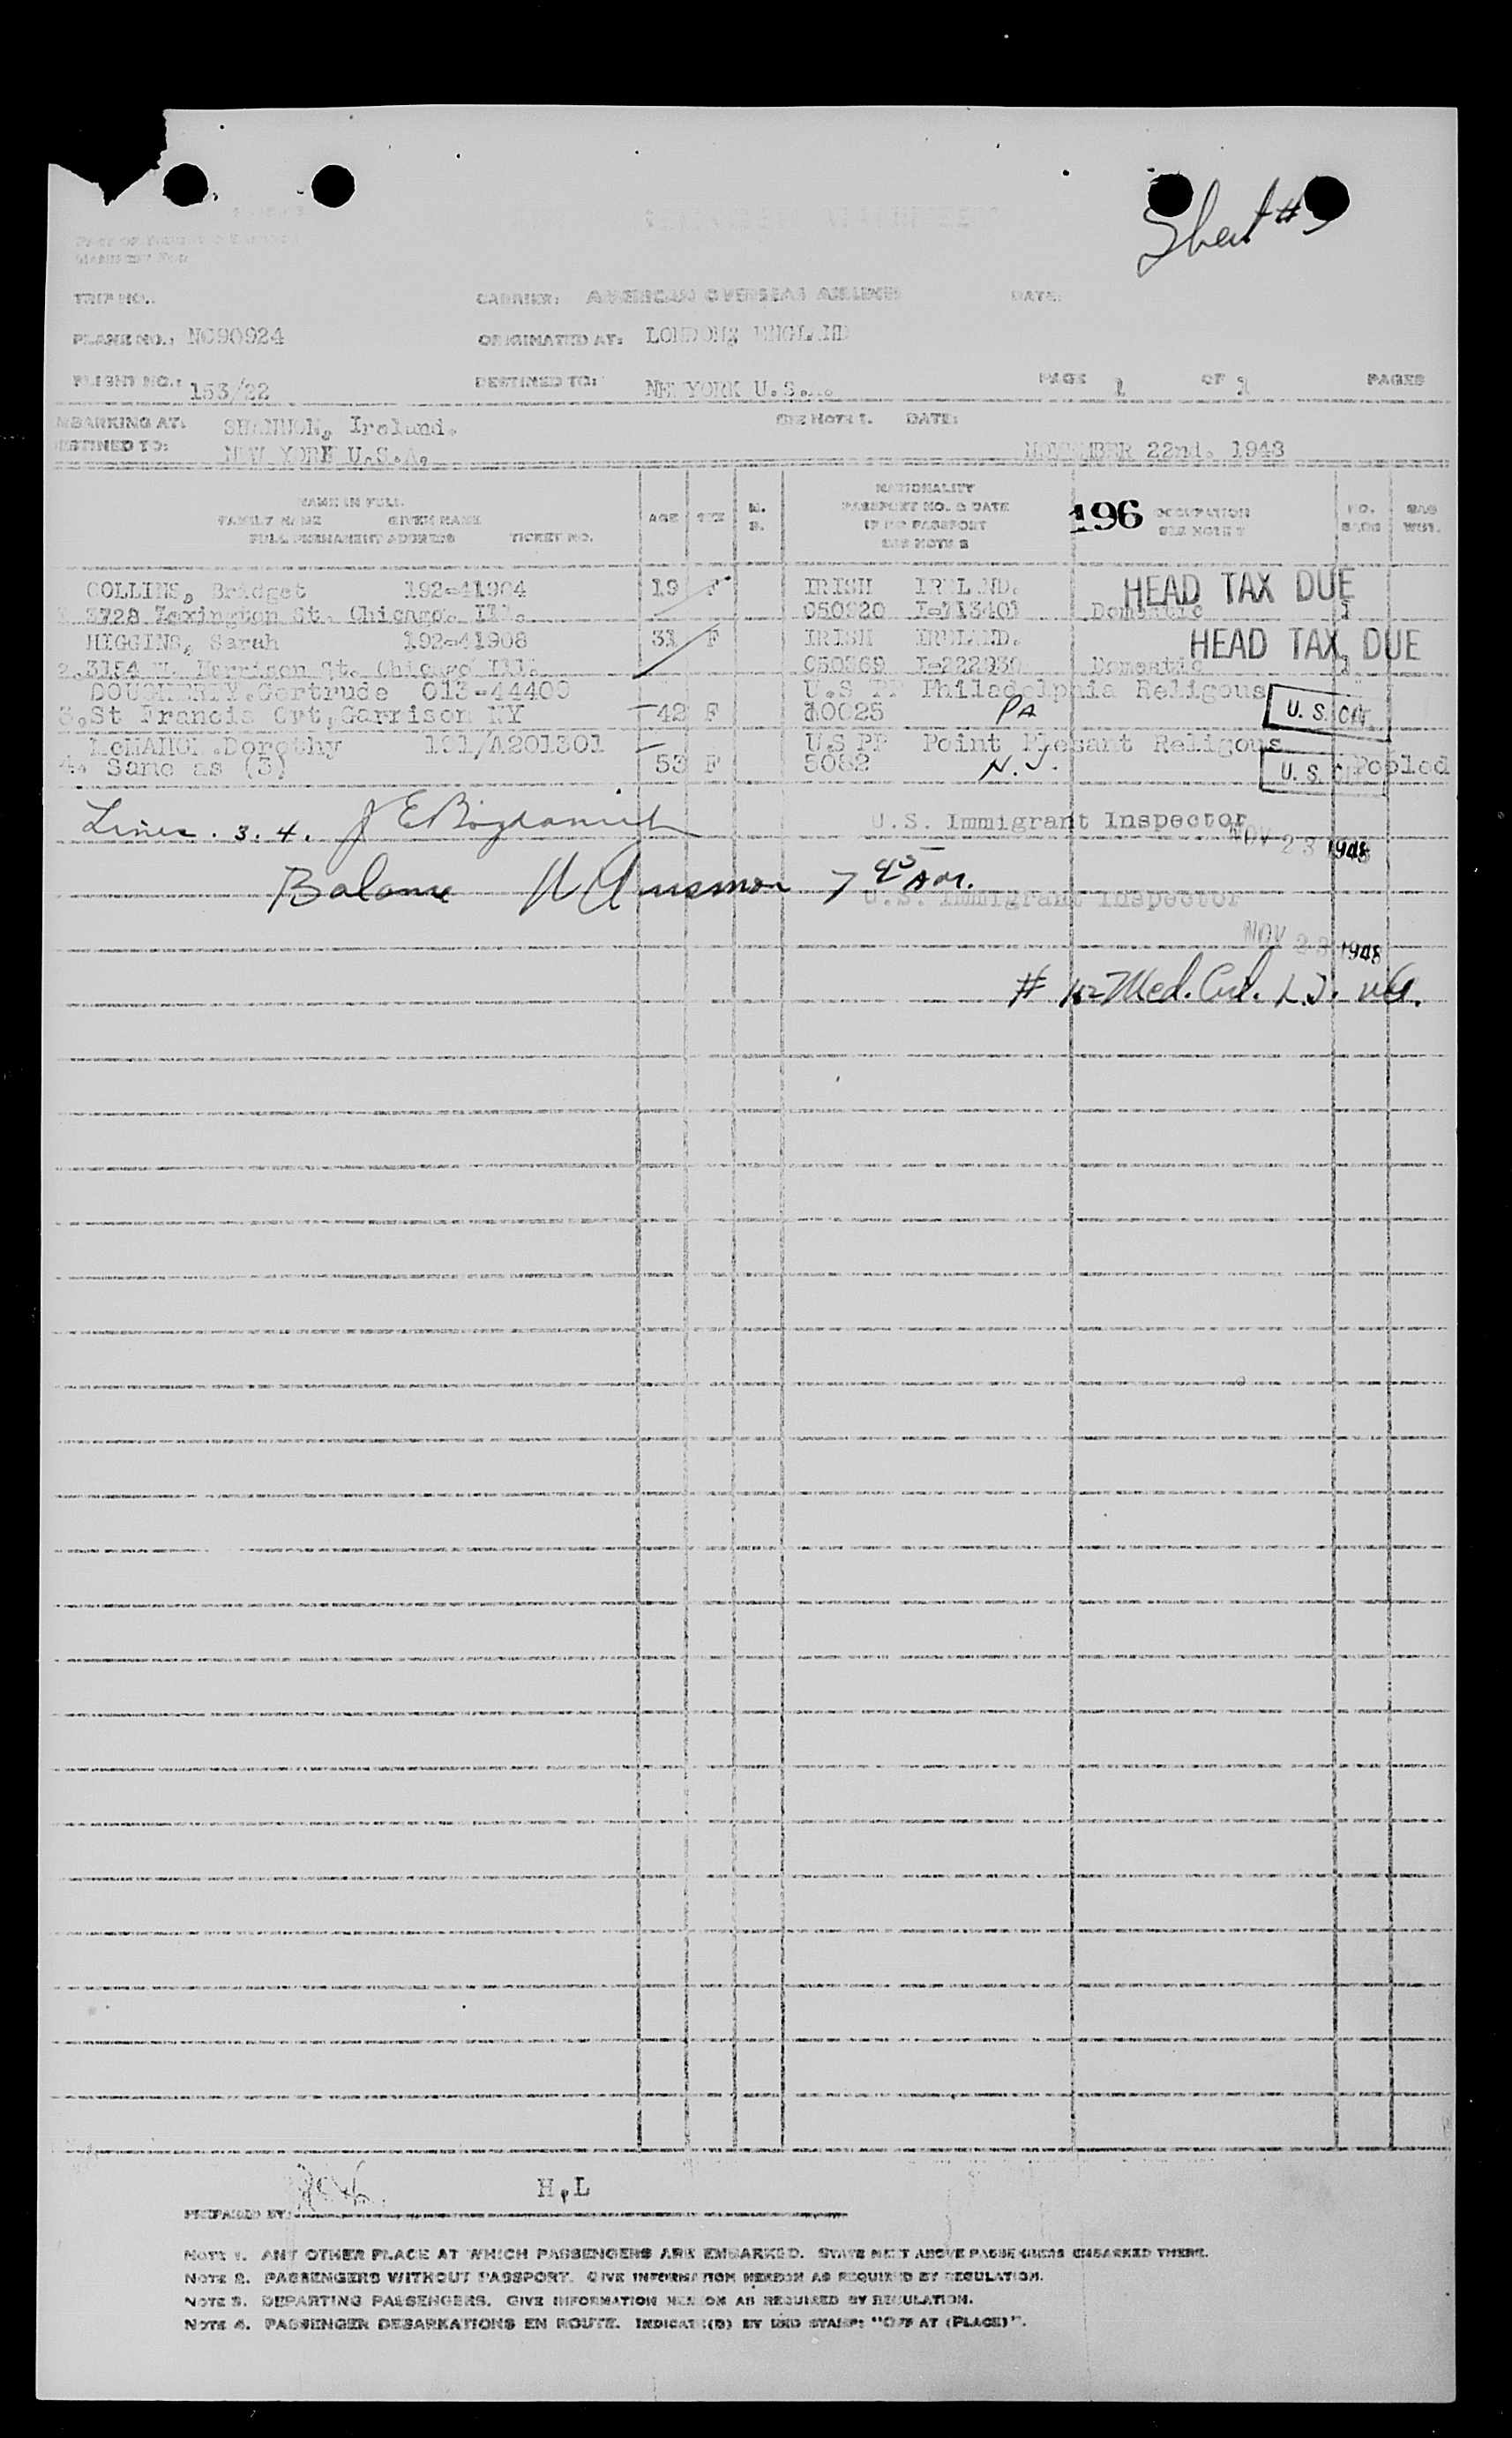 Sheet #3
PASSENGER MANIFEST
TRIP NO.: CARRIER: AMERICAN OVERSEAS AIRLINES DATE:
PLANE NO.: NC90924 ORIGINATED AT: LONDON, ENGLAND
FLIGHT NO.: 153/22 DESTINED TO: NEW YORK U.S.A. PAGE 1 OF 1 PAGES
MBARKING AT: SHANNON, Ireland. SEE NOTE 1. DATE:
ESTINED TO: NEW YORK U.S.A. NOVEMBER 22nd. 1948
NAME IN FULL NATIONALITY
FAMILY NAME GIVEN NAME AGE SEX M. S. PASSPORT NO. & DATE 196 OCCUPATION NO. BAGS BAG WGT.
IF NO PASSPORT SEE NOTE 3
FULL PERMANENT ADDRESS TICKET NO. SEE NOTE 2
COLLINS, Bridget 192-41904 19 F IRISH IRELAND. HEAD TAX DUE
3728 Lexington St. Chicago. Ill. 050920 Domestic 1
HIGGINS, Sarah 192-41908 31 F IRISH IRELAND. HEAD TAX DUE
2. 3154 W. Harrison St. Chicago Ill. I-222930 Domestic 1
DOUGHERTY.Gertrude 013-44400 U.S PP Philadelphia Religous
3.St Francis Cvt,Garrison NY 42 F 10025 PA U.S.Cit.
McMAHON.Dorothy 191/A201301 U.S PP Point Plesant Religous
4. Same as (3) 53 F 5082 N.J. U.S.C Pooled
Lines. 3. 4. U.S. Immigrant Inspector
NOV 23 1948
Balance 7 45 AM.
U.S. Immigrant Inspector
NOV 23 1948
H,L
PREPARED BY:
NOTE 1. ANY OTHER PLACE AT WHICH PASSENGERS ARE EMBARKED. STATE NEXT ABOVE PASSENGERS EMBARKED THERE.
NOTE 2. PASSENGERS WITHOUT PASSPORT. GIVE INFORMATION HEREON AS REQUIRED BY REGULATION.
NOTE 3. DEPARTING PASSENGERS. GIVE INFORMATION HEREON AS REQUIRED BY REGULATION.
NOTE 4. PASSENGER DEBARKATIONS EN ROUTE. INDICATE(D) BY END STAMP: "OFF AT (PLACE)".